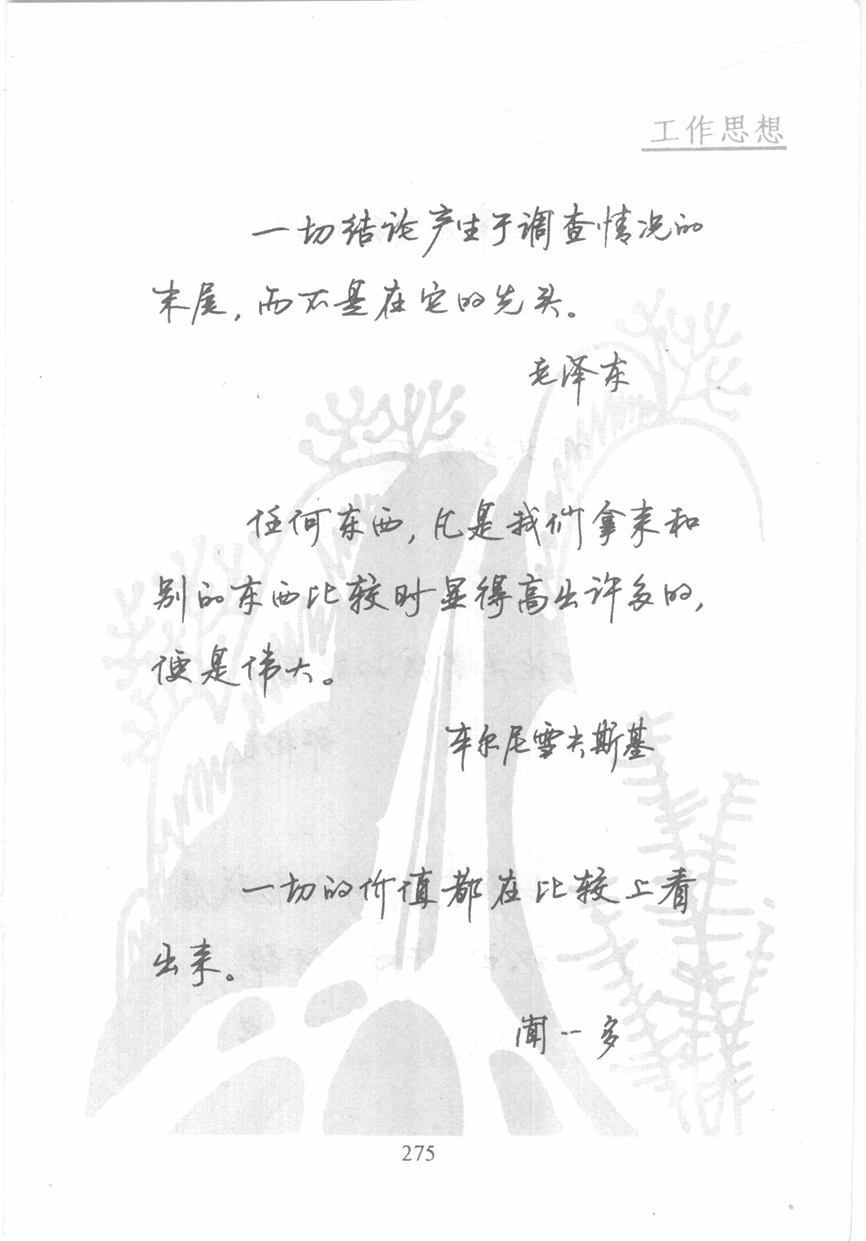 工作思想
一切结论产生于调查情况的
末尾,而不是在它的先头。
毛泽东
任何东西,凡是我们拿来和
别的东西比较时显得高出许多的,
便是伟大。
车尔尼雪夫斯基
一切的价值都在比较上看
出来。
闻一多
275